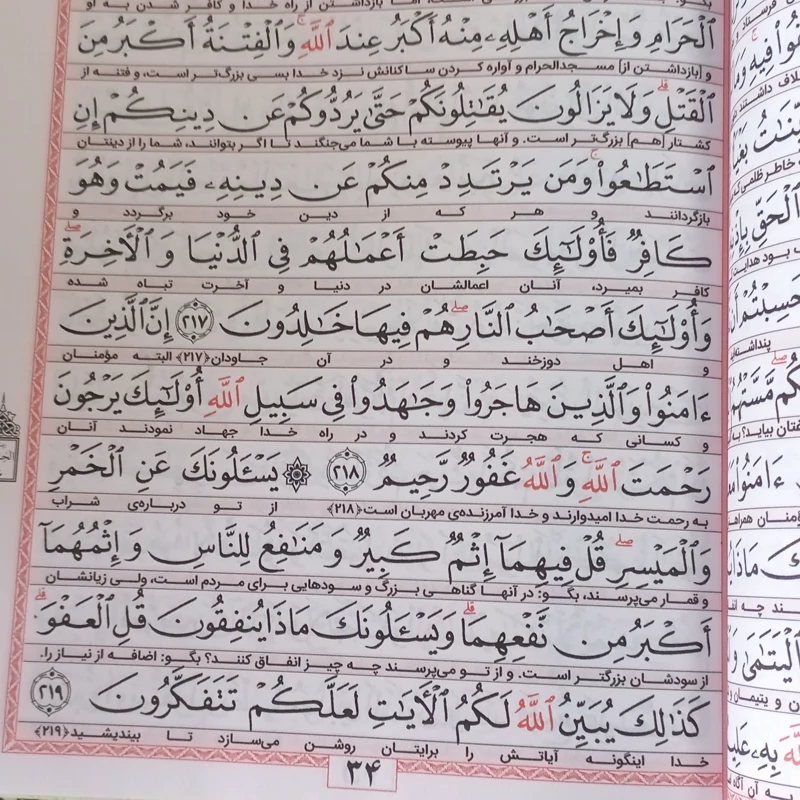 ٱلْحَرَامِ وَإِخْرَاجُ أَهْلِهِۦ مِنْهُ أَكْبَرُ عِندَ ٱللَّهِۚ وَٱلْفِتْنَةُ أَكْبَرُ مِنَ
و [بازداشتن از] مسجدالحرام و آواره کردن ساکنانش نزد خدا بسی بزرگ‌تر است، و فتنه از
ٱلْقَتْلِۗ وَلَا يَزَالُونَ يُقَٰتِلُونَكُمْ حَتَّىٰ يَرُدُّوكُمْ عَن دِينِكُمْ إِنِ
کشتار [هم] بزرگ‌تر است. و آنها پیوسته با شما می‌جنگند تا اگر بتوانند، شما را از دینتان
ٱسْتَطَٰعُوا۟ۚ وَمَن يَرْتَدِدْ مِنكُمْ عَن دِينِهِۦ فَيَمُتْ وَهُوَ
بازگردانند و هر که از دین خود برگردد و
كَافِرٌ فَأُو۟لَٰٓئِكَ حَبِطَتْ أَعْمَٰلُهُمْ فِي ٱلدُّنْيَا وَٱلْأَخِرَةِۖ
کافر بمیرد، آنان اعمالشان در دنیا و آخرت تباه شده
وَأُو۟لَٰٓئِكَ أَصْحَٰبُ ٱلنَّارِۖ هُمْ فِيهَا خَٰلِدُونَ ٢١٧ إِنَّ ٱلَّذِينَ
و اهل دوزخند و در آن جاودان﴿۲۱۷﴾ البته مؤمنان
ءَامَنُوا۟ وَٱلَّذِينَ هَاجَرُوا۟ وَجَٰهَدُوا۟ فِي سَبِيلِ ٱللَّهِ أُو۟لَٰٓئِكَ يَرْجُونَ
و کسانی که هجرت کردند و در راه خدا جهاد نمودند آنان
رَحْمَتَ ٱللَّهِۚ وَٱللَّهُ غَفُورٌ رَّحِيمٌ ٢١٨ ۞ يَسْـَٔلُونَكَ عَنِ ٱلْخَمْرِ
به رحمت خدا امیدوارند و خدا آمرزنده‌ی مهربان است﴿۲۱۸﴾ از تو درباره‌ی شراب
وَٱلْمَيْسِرِۖ قُلْ فِيهِمَآ إِثْمٌ كَبِيرٌ وَمَنَٰفِعُ لِلنَّاسِ وَإِثْمُهُمَآ
و قمار می‌پرسند، بگو: در آنها گناهی بزرگ و سودهایی برای مردم است، ولی زیانشان
أَكْبَرُ مِن نَّفْعِهِمَاۗ وَيَسْـَٔلُونَكَ مَاذَا يُنفِقُونَ قُلِ ٱلْعَفْوَۗ
از سودشان بزرگتر است. و از تو می‌پرسند چه چیز انفاق کنند؟ بگو: اضافه از نیاز را.
كَذَٰلِكَ يُبَيِّنُ ٱللَّهُ لَكُمُ ٱلْأَيَٰتِ لَعَلَّكُمْ تَتَفَكَّرُونَ ٢١٩
خدا اینگونه آیاتش را برایتان روشن می‌سازد تا بیندیشید﴿۲۱۹﴾
۳۴